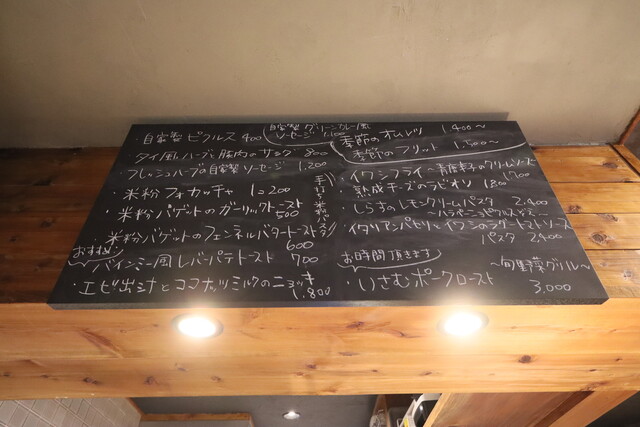 ・自家製 ピクルス 400
自家製 グリーンカレー風
ソーセージ 1,100
タイ風ハーブと豚肉のサラダ 800
フレッシュハーブの自家製ソーセージ 1,200
・米粉 フォカッチャ 1コ 200
・米粉バゲットのガーリックトースト
500
米粉バゲットのフェンネルバタートースト
600
おすすめ
バインミー風レバーパテトースト 700
・エビ出汁とココナッツミルクのニョッキ
1,800
季節のオムレツ 1,400〜
季節のフリット 1,500〜
手打ち米粉パスタ
・イワシフライ〜青唐辛子のクリームソース
1,700
・熟成チーズのラビオリ 1,800
・しらすのレモンクリームパスタ 2,400
・イタリアンパセリとイワシの
パスタ 2,400
お時間頂きます
・いさむポークロースト
〜旬野菜グリル〜
3,000